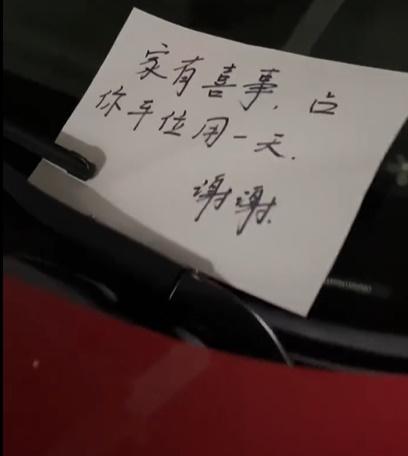 家有喜事,占
你车位用一天.
谢谢.